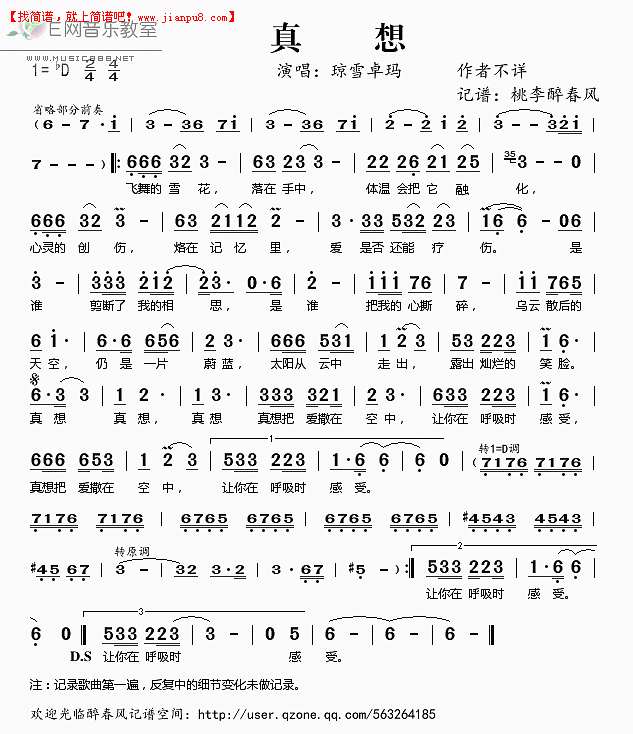 【找简谱，就上简谱吧！→ www.jianpu8.com】
E网音乐教室
www.music888.net
真 想
1=♭D 2/4 4/4
演唱：琼雪卓玛 作者不详
记谱：桃李醉春风
省略部分前奏
(6 - 7 · i | 3 - 36 7i | 3 - 36 7i | 2 - 2 1 2 | 3 - - 32i |
7 - - - ) ‖: 666 32 3 - | 63 23 3 - | 22 26 21 25 | 35 3 - - 0 |
飞舞的 雪 花， 落在 手中， 体温 会把 它 融 化，
666 32 3 - | 63 2112 2 - | 3 · 33 532 23 | 16 6 - 06 |
心灵的 创 伤， 烙在 记 忆 里， 爱 是否 还能 疗 伤。 是
3 - 333 212 | 23 · 0·6 | 2 - iii 76 | 7 - i2 765 |
谁 剪断了 我的相 思， 是 谁 把我的 心撕 碎， 乌云 散后的
6 i · | 6·6 656 | 1 3 · | 666 53i | 1 2 3 | 53 223 | 1 6 · |
天空， 仍 是 一片 蔚蓝， 太阳从 云中 走 出， 露出 灿烂的 笑 脸。
6·3 3 | 1 2 · | 1 3 · | 333 321 | 3 2 · | 633 223 | 1 2 · |
真想 真想， 真想 真想把 爱撒在 空 中， 让你在 呼吸时 感 受，
666 653 | 1 2 3 | 1 533 223 | 1·6 6 | 6 0 | 转1=D调 (7176 7176 |
真想把 爱撒在 空 中， 让你在 呼吸时 感 受。
7176 7176 | 6765 6765 | 6765 6765 | #4543 4543 |
#45 67 | 转原调 3 - | 32 3·2 | 3·67 | #5 - ) :‖ 2 533 223 | 1·6 6 |
让你在 呼吸时 感 受。
6 0 ‖ 3 533 223 | 3 - | 0 5 | 6 - | 6 - ‖
D.S 让你在 呼吸时 感 受。
注：记录歌曲第一遍，反复中的细节变化未做记录。
欢迎光临醉春风记谱空间：http://user.qzone.qq.com/563264185